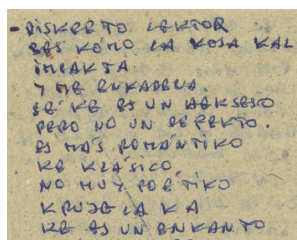 - DISKRETO LEKTOR
BES KOMO LA KOSA KAL
IMPAKTA
Y ME ENKADENA.
SÉ KE ES UN AEKSESO
PERO NO UN DEFEKTO.
ES MÁS ROMÁNTIKO
KE KLÁSICO
NO MUY POÉTIKO
KRUJE LA KA
KE ES UN ENKANTO